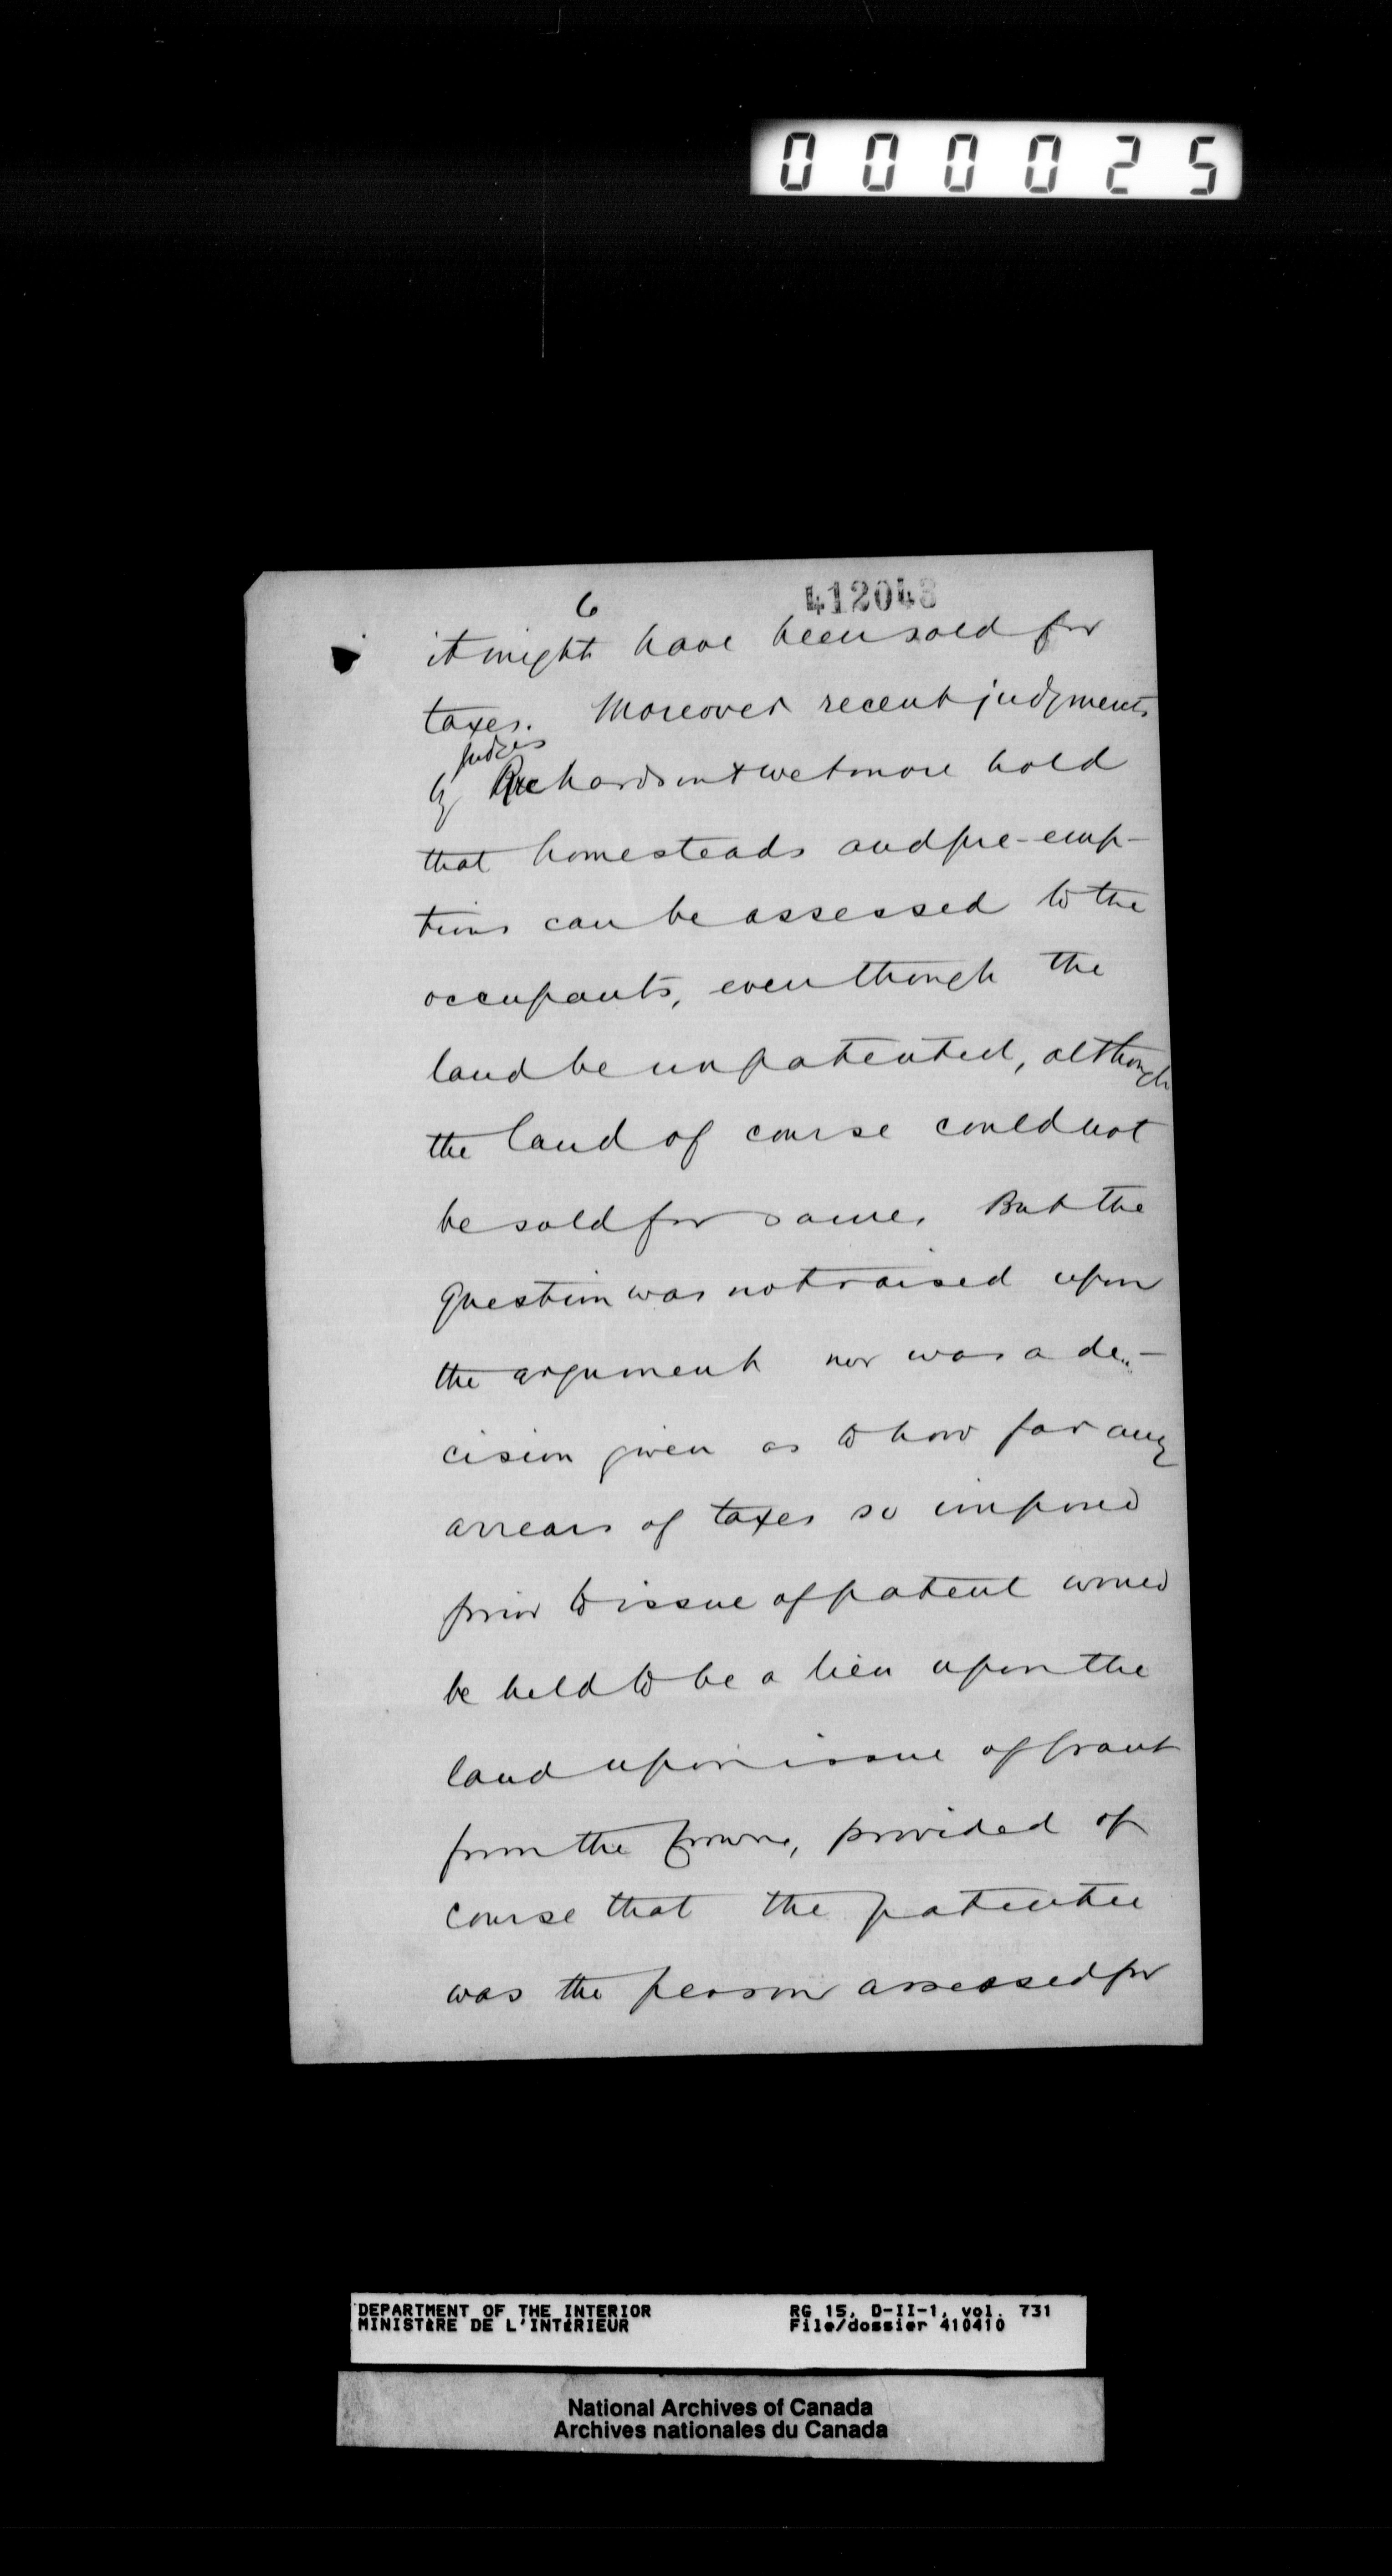 000025
6
412043
it might have been sold for
taxes. Moreover recent judgments
judges
by Richardson & Wetmore hold
that homesteads and pre-emp-
tions can be assessed to the
occupants, even though the
land be unpatented, although
the land of course could not
be sold for same. But the
question was not raised upon
the argument nor was a de-
cision given as to how far any
arrears of taxes so imposed
prior to issue of patent would
be held to be a lien upon the
land upon issue of grant
from the Crown, provided of
course that the patentee
was the person assessed for
DEPARTMENT OF THE INTERIOR
MINISTÈRE DE L'INTÉRIEUR
RG 15, D-II-1, vol. 731
File/dossier 410410
National Archives of Canada
Archives nationales du Canada